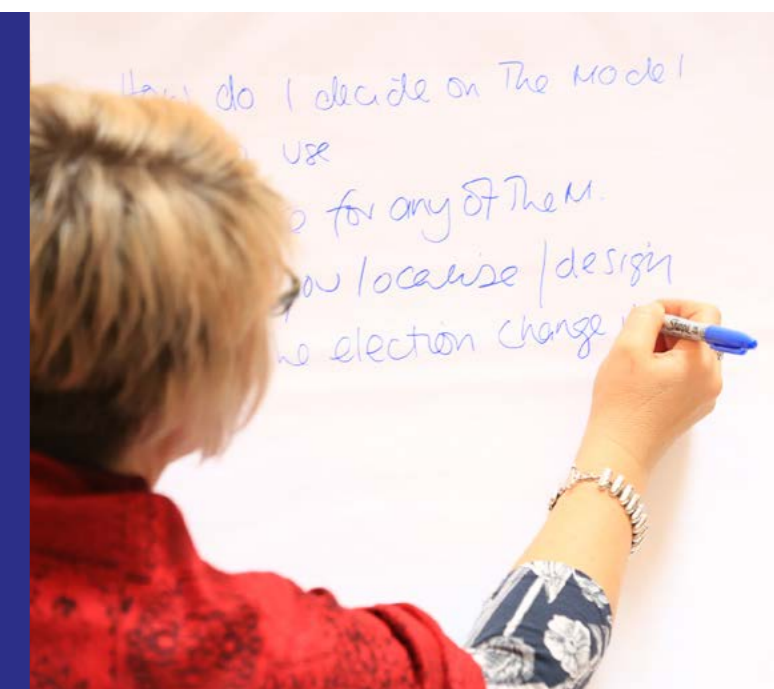 How do I decide on The Model
use
for any of Them.
localise / design
election change